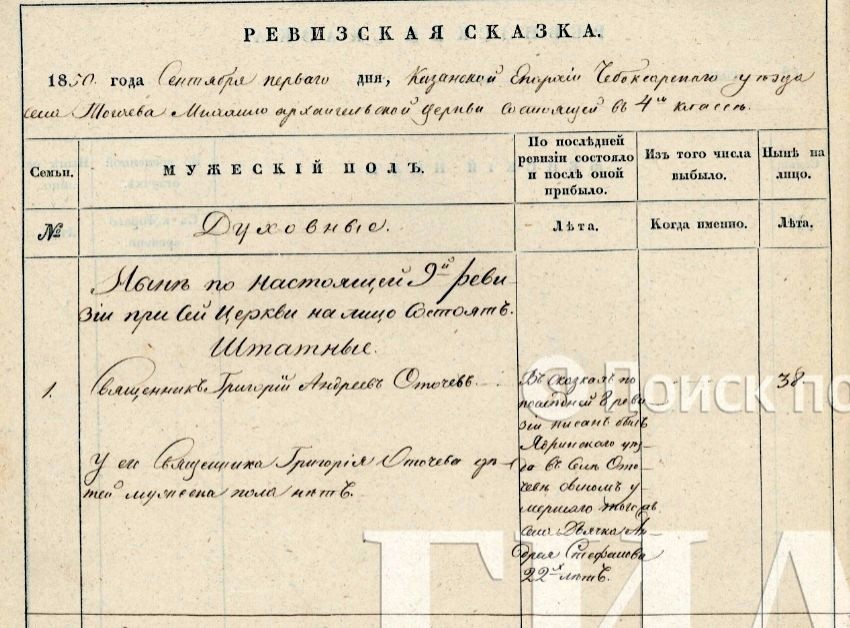 РЕВИЗСКАЯ СКАЗКА.
1850. года Сентября перваго дня, Казанской Епархіи Чебоксарскаго уѣзда
села Тогаева Михаило архангельской церкви состоящей въ 4мъ классѣ.
Семьи.
МУЖЕСКІЙ ПОЛЪ.
По послѣдней
ревизіи состояло
и послѣ оной
прибыло.
Изъ того числа
выбыло.
Нынѣ на
лицо.
№
Духовные.
Лѣта.
Когда именно.
Лѣта.
Нынѣ по настоящей 9й реви
зіи при сей Церкви на лицо состоятъ.
Штатные.
1.
Священникъ Григорій Андреевъ Оточевъ
Въ сказкахъ по
послѣдней 8 реви
зіи писанъ былъ
Ядринскаго уѣз
да въ селѣ Ото
чевѣ сыномъ у
мершаго того
села Дьячка Ан
дрея Стефанова
22хъ лѣтъ.
38.
У его Священника Григорія Оточева дѣ
тей мужеска пола нѣтъ.
© Поиск по
ГИА